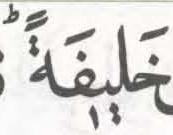 خَلِيفَةً ؕ